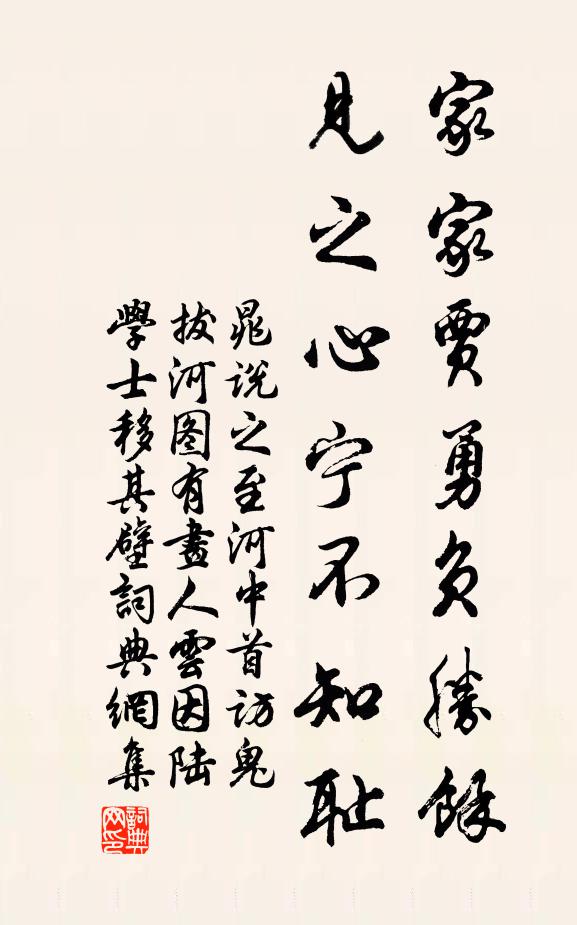 家家賈勇負勝餘
見之心宁不知耻
晁說之至河中首訪鬼
拔河图有畫人雲因陆
學士移其壁詞典網集
詞典网印